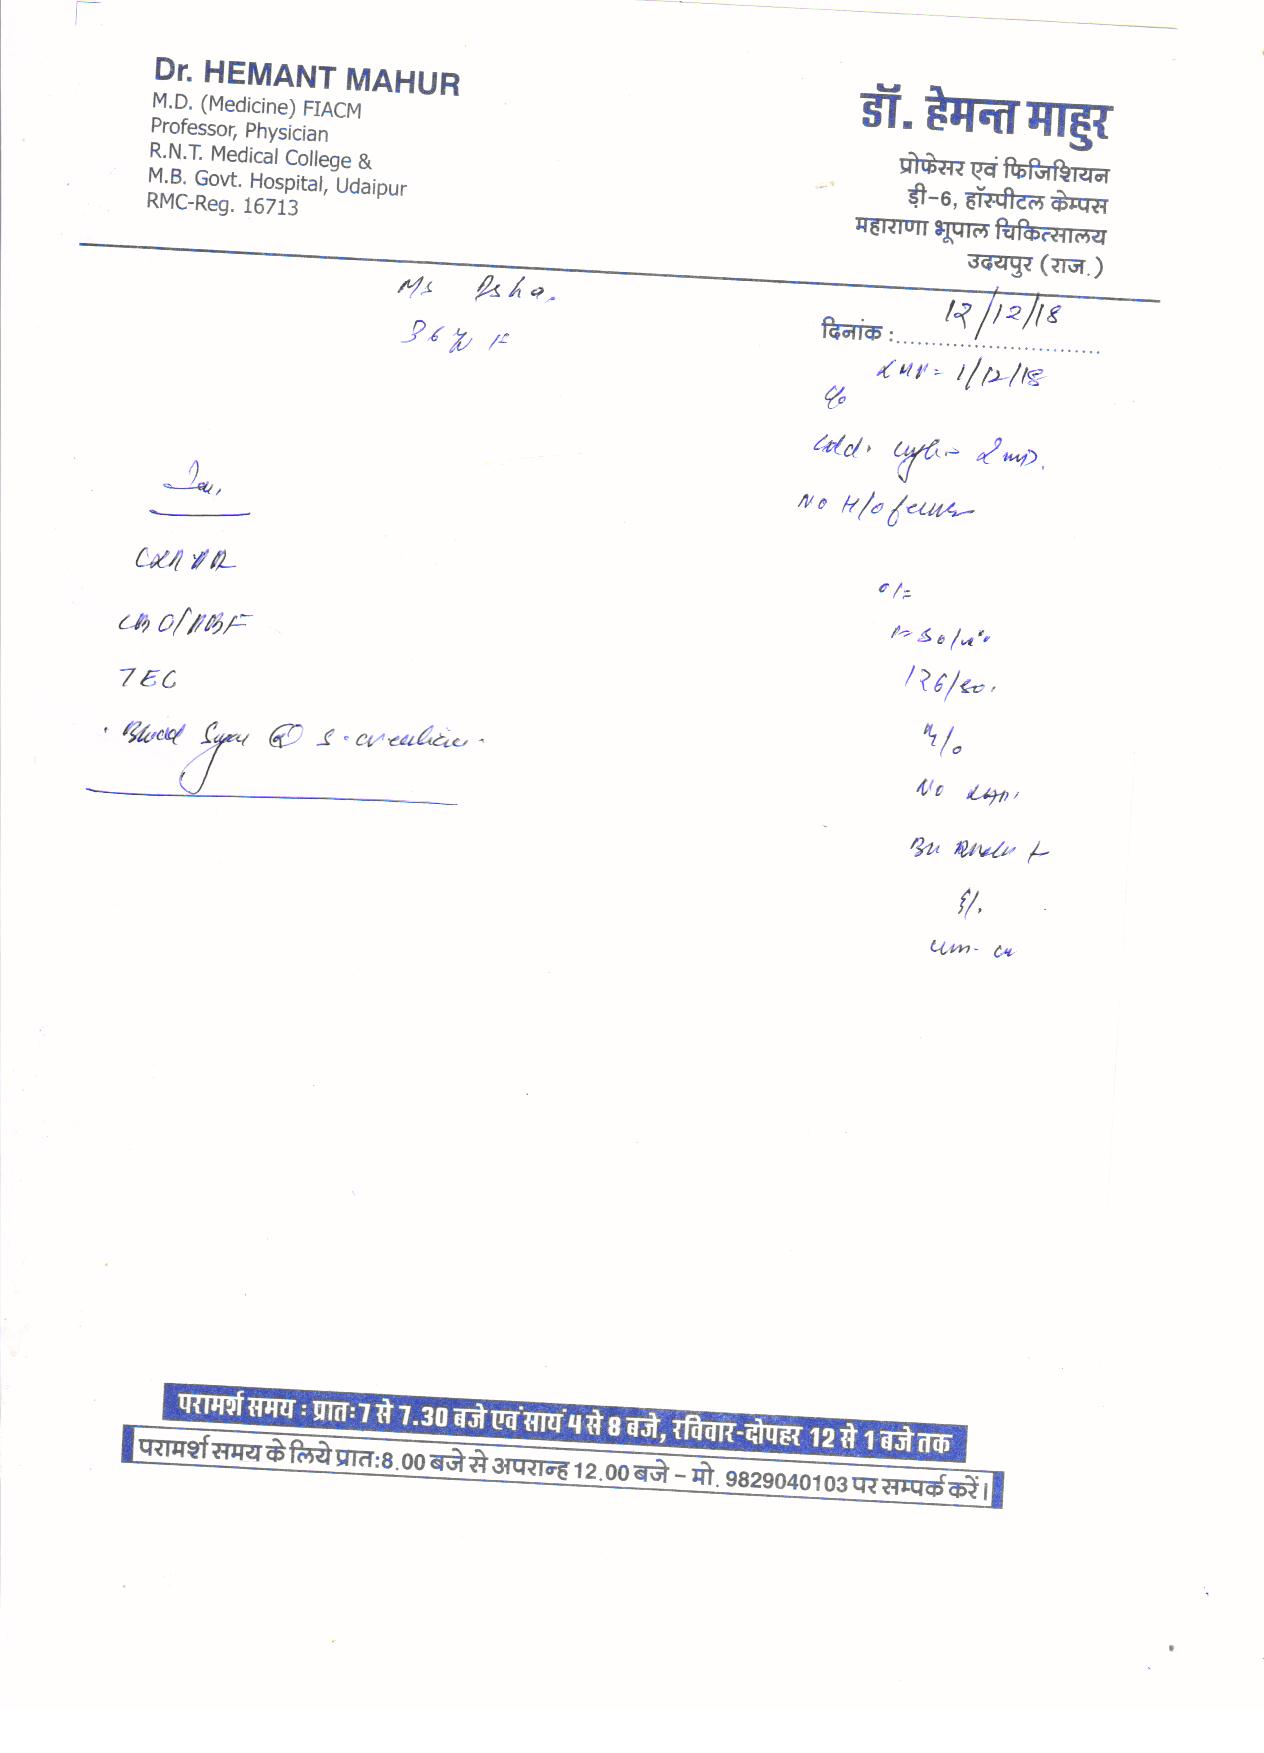 Dr. HEMANT MAHUR
M.D. (Medicine) FIACM
Professor, Physician
R.N.T. Medical College &
M.B. Govt. Hospital, Udaipur
RMC-Reg. 16713
डॉ. हेमन्त माहुर
प्रोफेसर एवं फिजिशियन
डी-6, हॉस्पीटल केम्पस
महाराणा भूपाल चिकित्सालय
उदयपुर (राज.)
Ms Asha.
36 F
दिनांक : 12/12/18
LMP = 1/12/18
C/o
Cold.
No H/o fever
O/E
126/80.
No
CBC/PBF
TEC
Blood Sugar S. creatinine
परामर्श समय : प्रातः7 से 7.30 बजे एवं सायं 4 से 8 बजे, रविवार-दोपहर 12 से 1 बजे तक
परामर्श समय के लिये प्रात:8.00 बजे से अपरान्ह 12.00 बजे – मो. 9829040103 पर सम्पर्क करें।